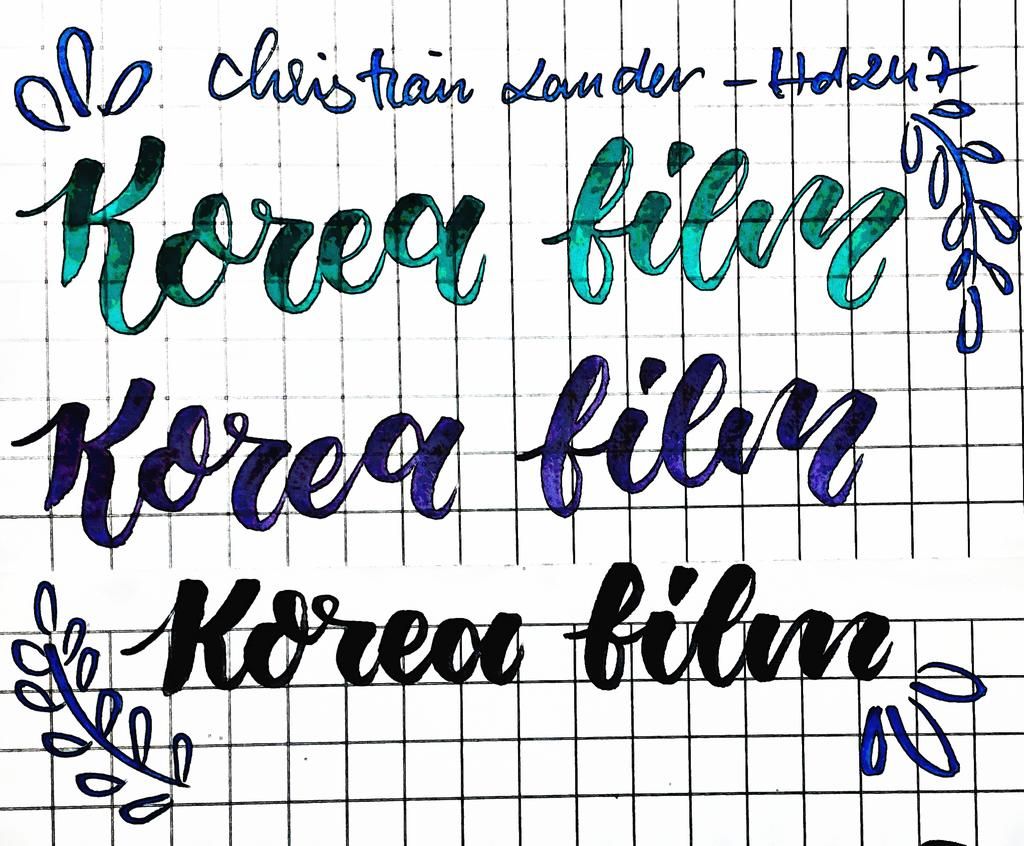 Christian Lander - Hd247
Korea film
Korea film
Korea film